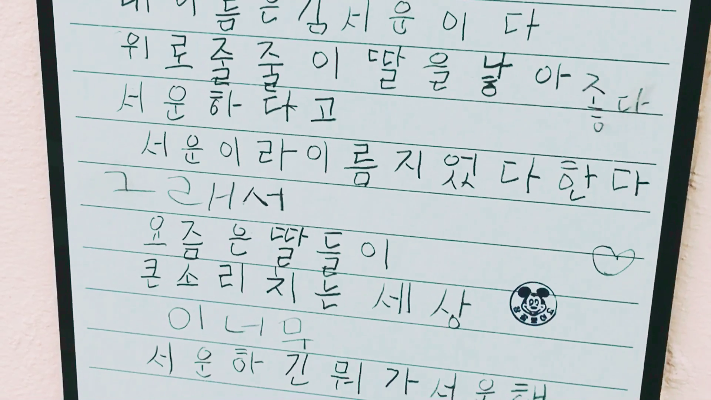 내 이름은 김서운이다
위로줄줄이 딸을 낳아
서운하다고
서운이라 이름지었다 한다
그래서
요즘은 딸들이
큰소리치는 세상
이 너무 좋다
서운하긴 뭐가 서운해